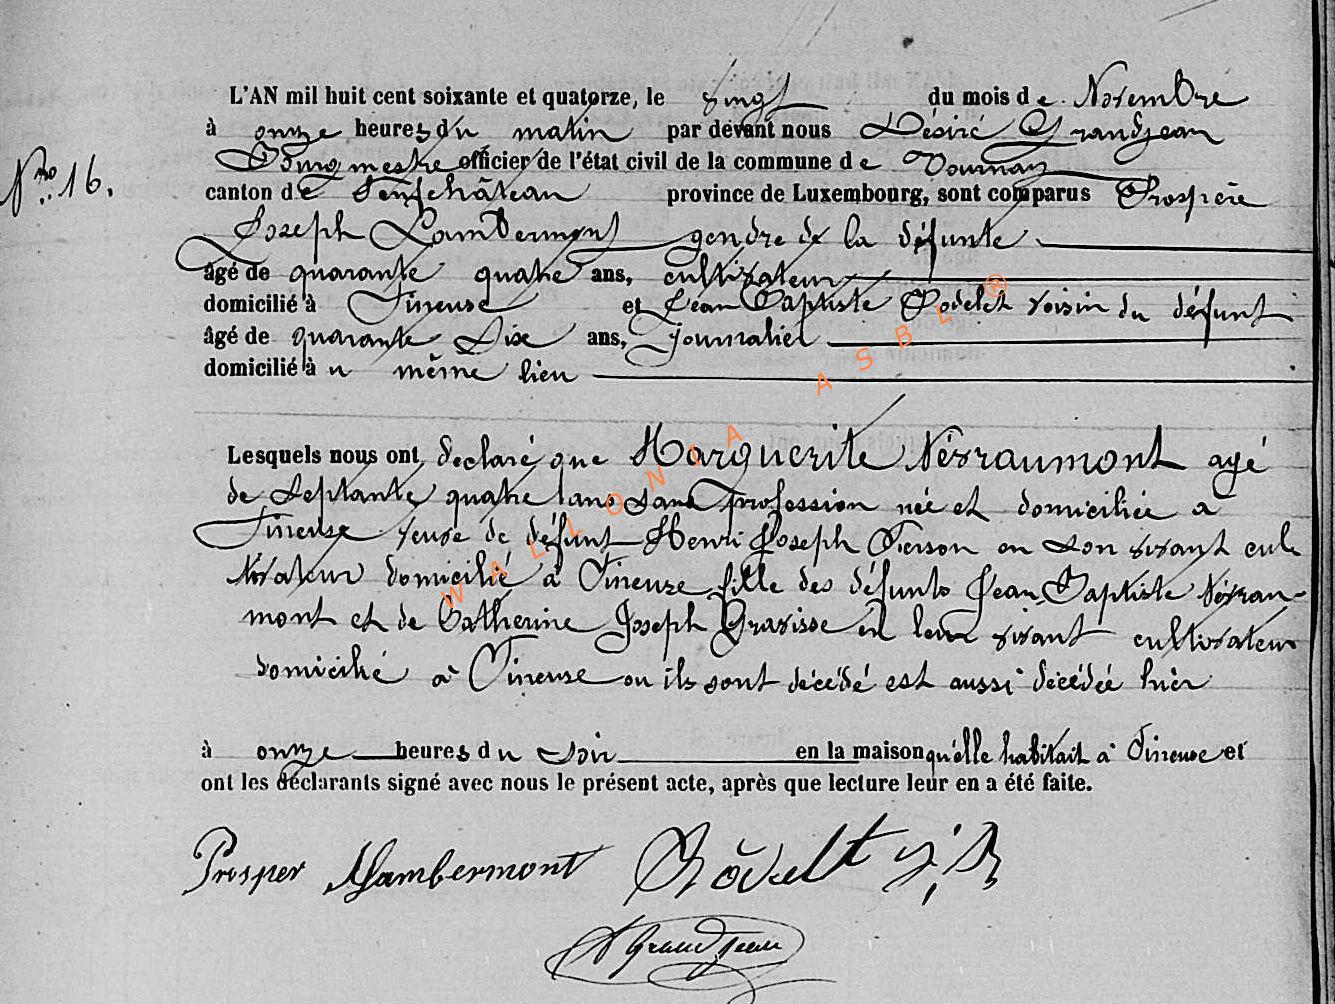 L'AN mil huit cent soixante et quatorze, le vingt du mois de Novembre
à onze heures du matin par devant nous Désiré Grandjean
Bourgmestre officier de l'état civil de la commune de Tournay
Nro 16.
canton de Neufchâteau province de Luxembourg, sont comparus Prospère
Joseph Lambermont gendre de la défunte
âgé de quarante quatre ans, cultivateur
domicilié à Tineuse et Jean Baptiste Rodelet voisin du défunt
âgé de quarante Dix ans, journalier
domicilié à u même lieu
Lesquels nous ont declaré que Marguerite Névraumont agé
de septante quatre ans sans profession née et domiciliée a
Tineuse veuve de défunt Henri Joseph Pierson en son vivant cul
tivateur domicilié à Tineuse fille des défunts Jean Baptiste Névrau-
mont et de Catherine Joseph Gravisse en leur vivant cultivateur
domicilié à Tineuse ou ils sont décédé est aussi décédée hièr
à onze heures du soir en la maison qu'elle habitait à Tineuse et
ont les déclarants signé avec nous le présent acte, après que lecture leur en a été faite.
WALLONIA ASBL ®
Prosper Lambermont
Grandjean